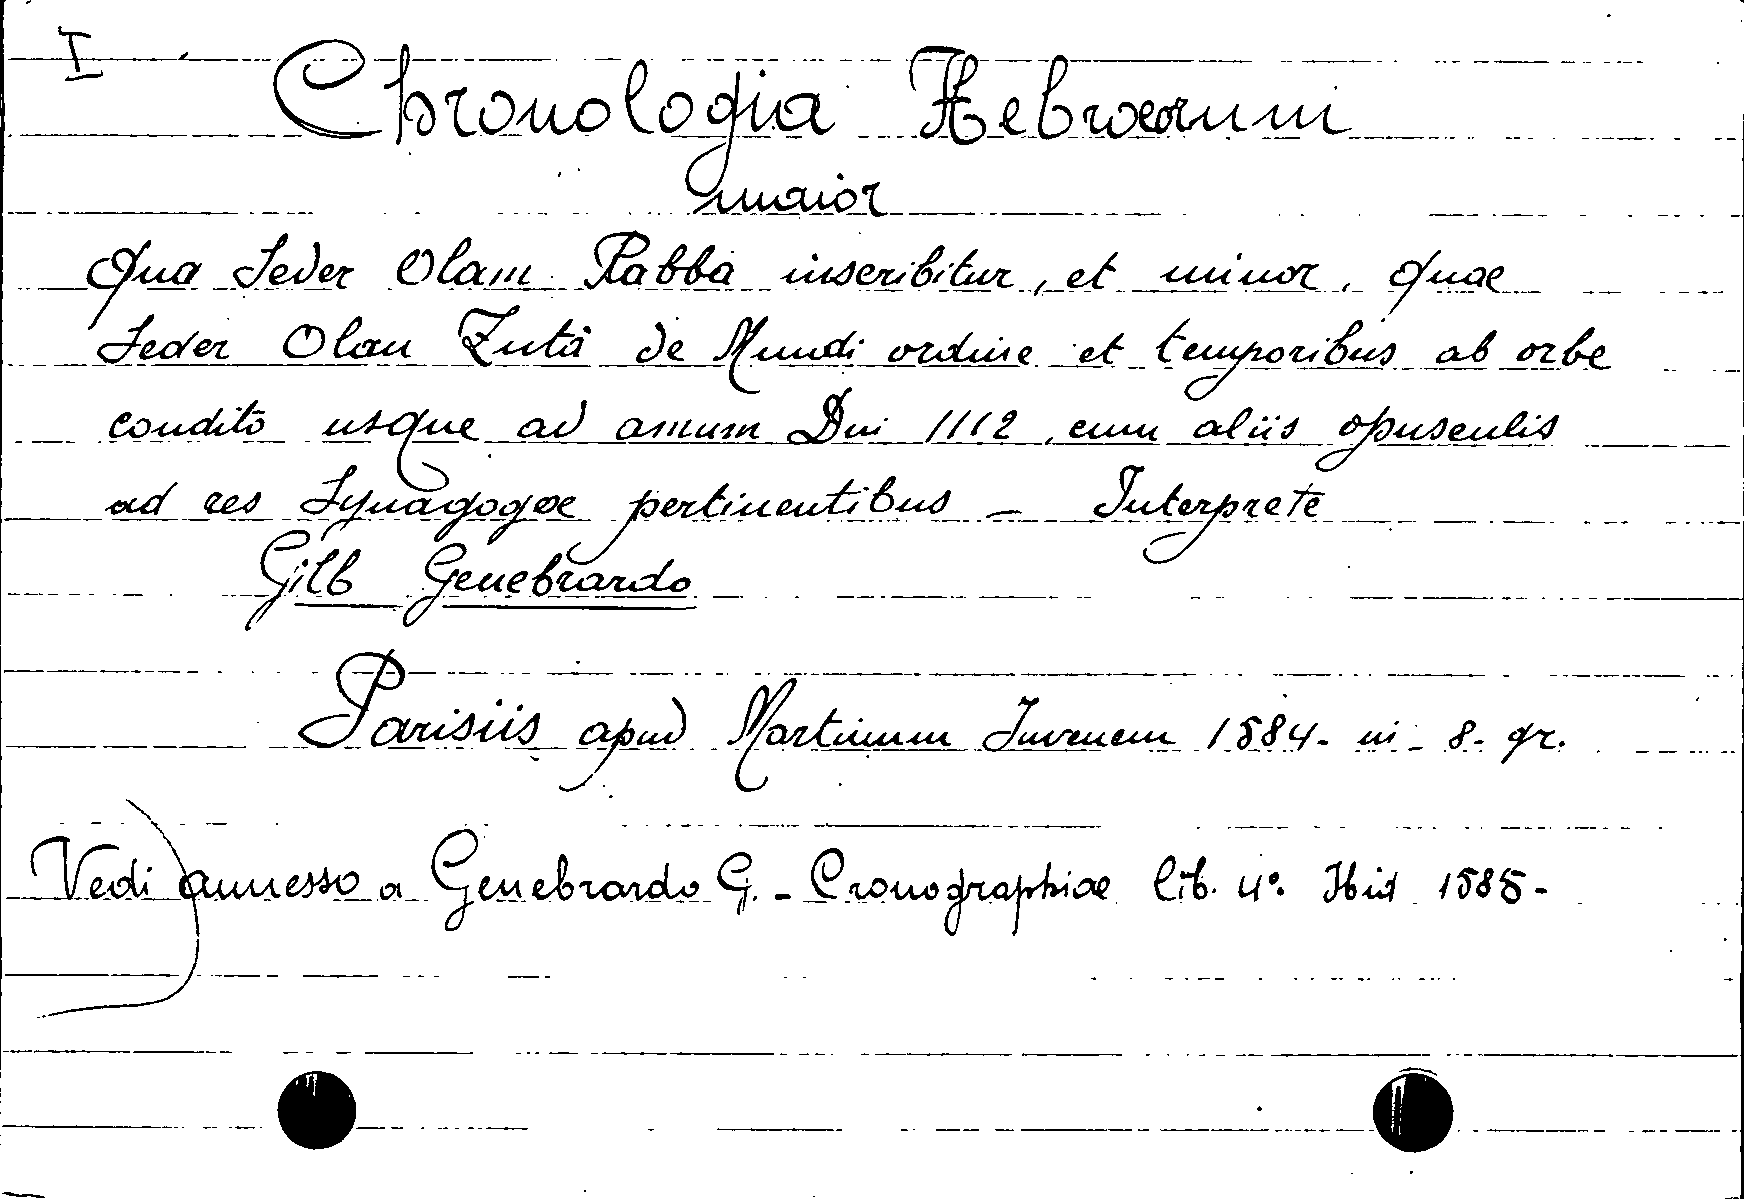 I
Chronologia Hebræorum
maior
Qua Seder Olam Rabba inscribitur, et minor, quae
Seder Olam Zutà de Mundi ordine et temporibus ab orbe
condito usque ad annum Dni 1112, cum aliis opusculis
ad res Synagogæ pertinentibus - Interprete
Gilb Genebrardo
Parisiis apud Martinum Juvenem 1584 - in - 8 - gr.
Vedi annesso a Genebrardo G. - Cronographiae lib. 4°. Ibid 1585 -